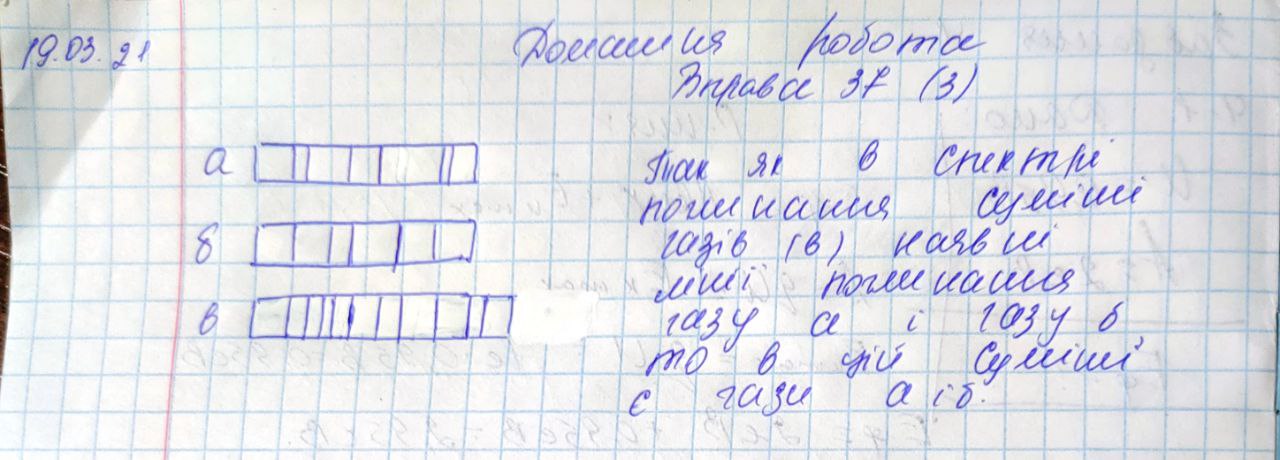 19.03.21
Домашня робота
Вправа 37 (3)
а
б
в
Так як в спектрі
поглинання суміші
газів (в) наявні
лінії поглинання
газу а і газу б
то в цій суміші
є гази а і б.